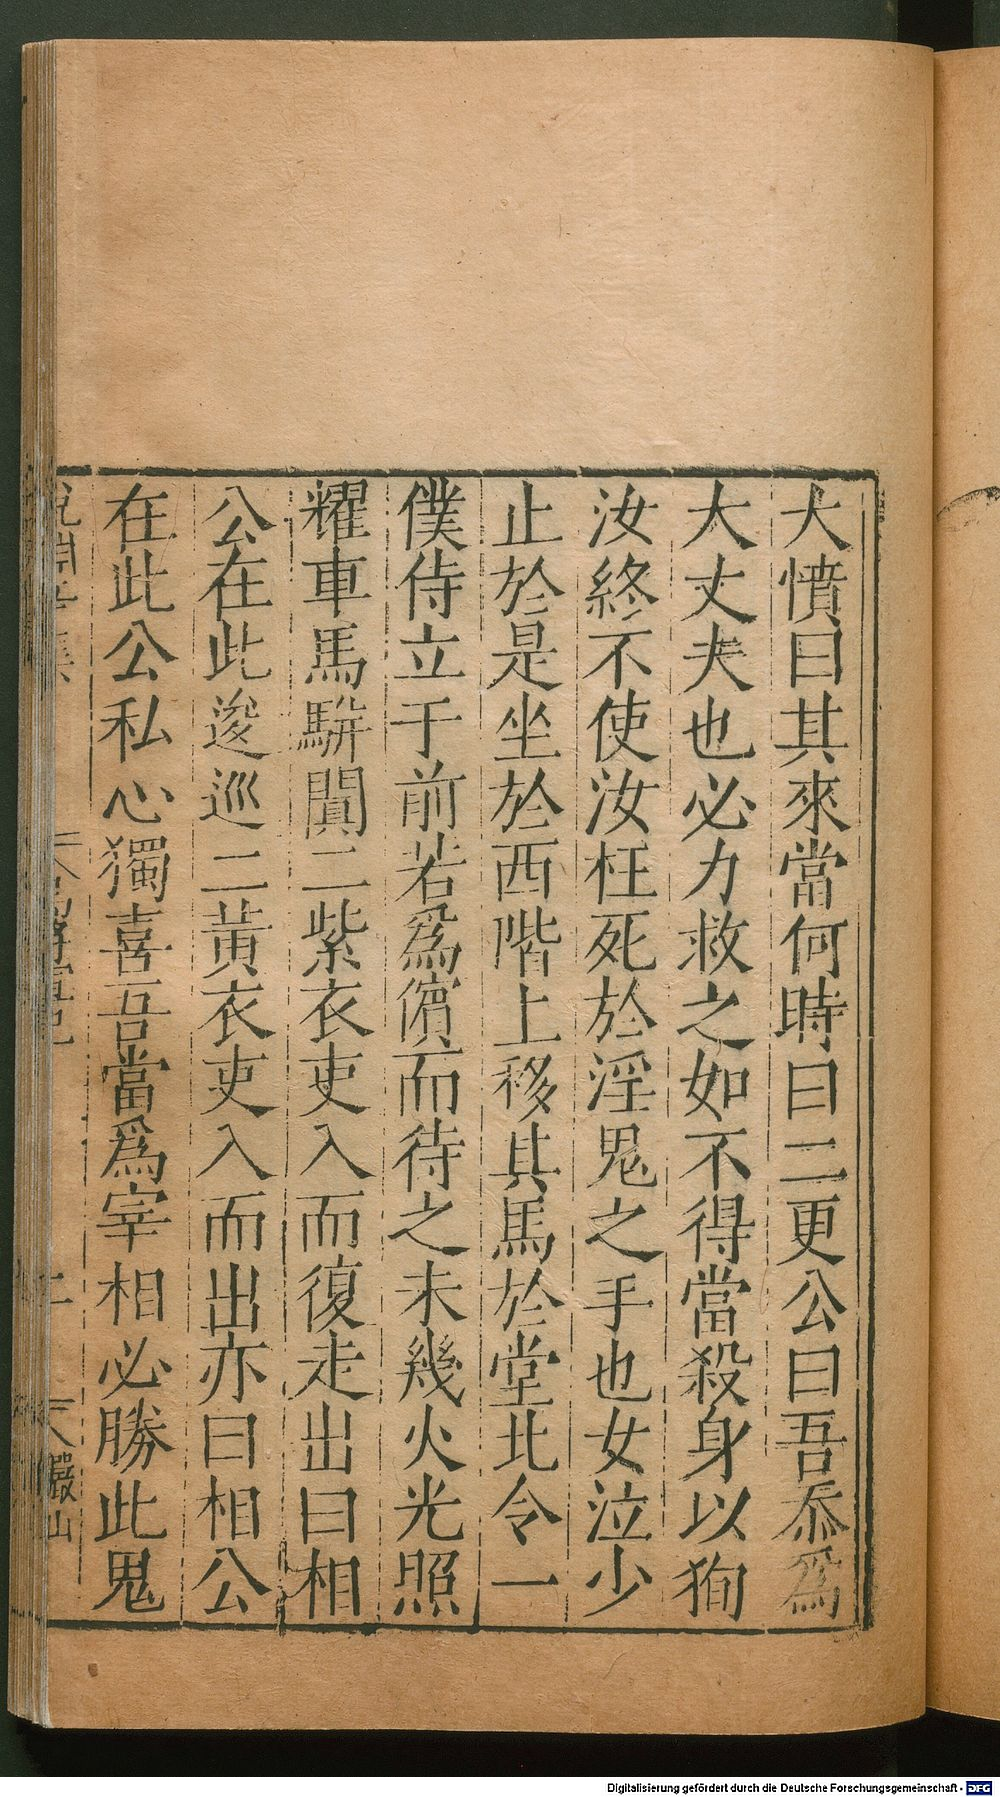 大憤曰其來當何時曰二更公曰吾忝爲
大丈夫也必力救之如不得當殺身以狥
汝終不使汝枉死於淫鬼之手也女泣少
止於是坐於西階上移其馬於堂北令一
僕侍立于前若爲儐而待之未幾火光照
耀車馬駢闐二紫衣吏入而復走出曰相
公在此逡巡二黃衣吏入而出亦曰相公
在此公私心獨喜吾當爲宰相必勝此鬼
Digitalisierung gefördert durch die Deutsche Forschungsgemeinschaft - DFG